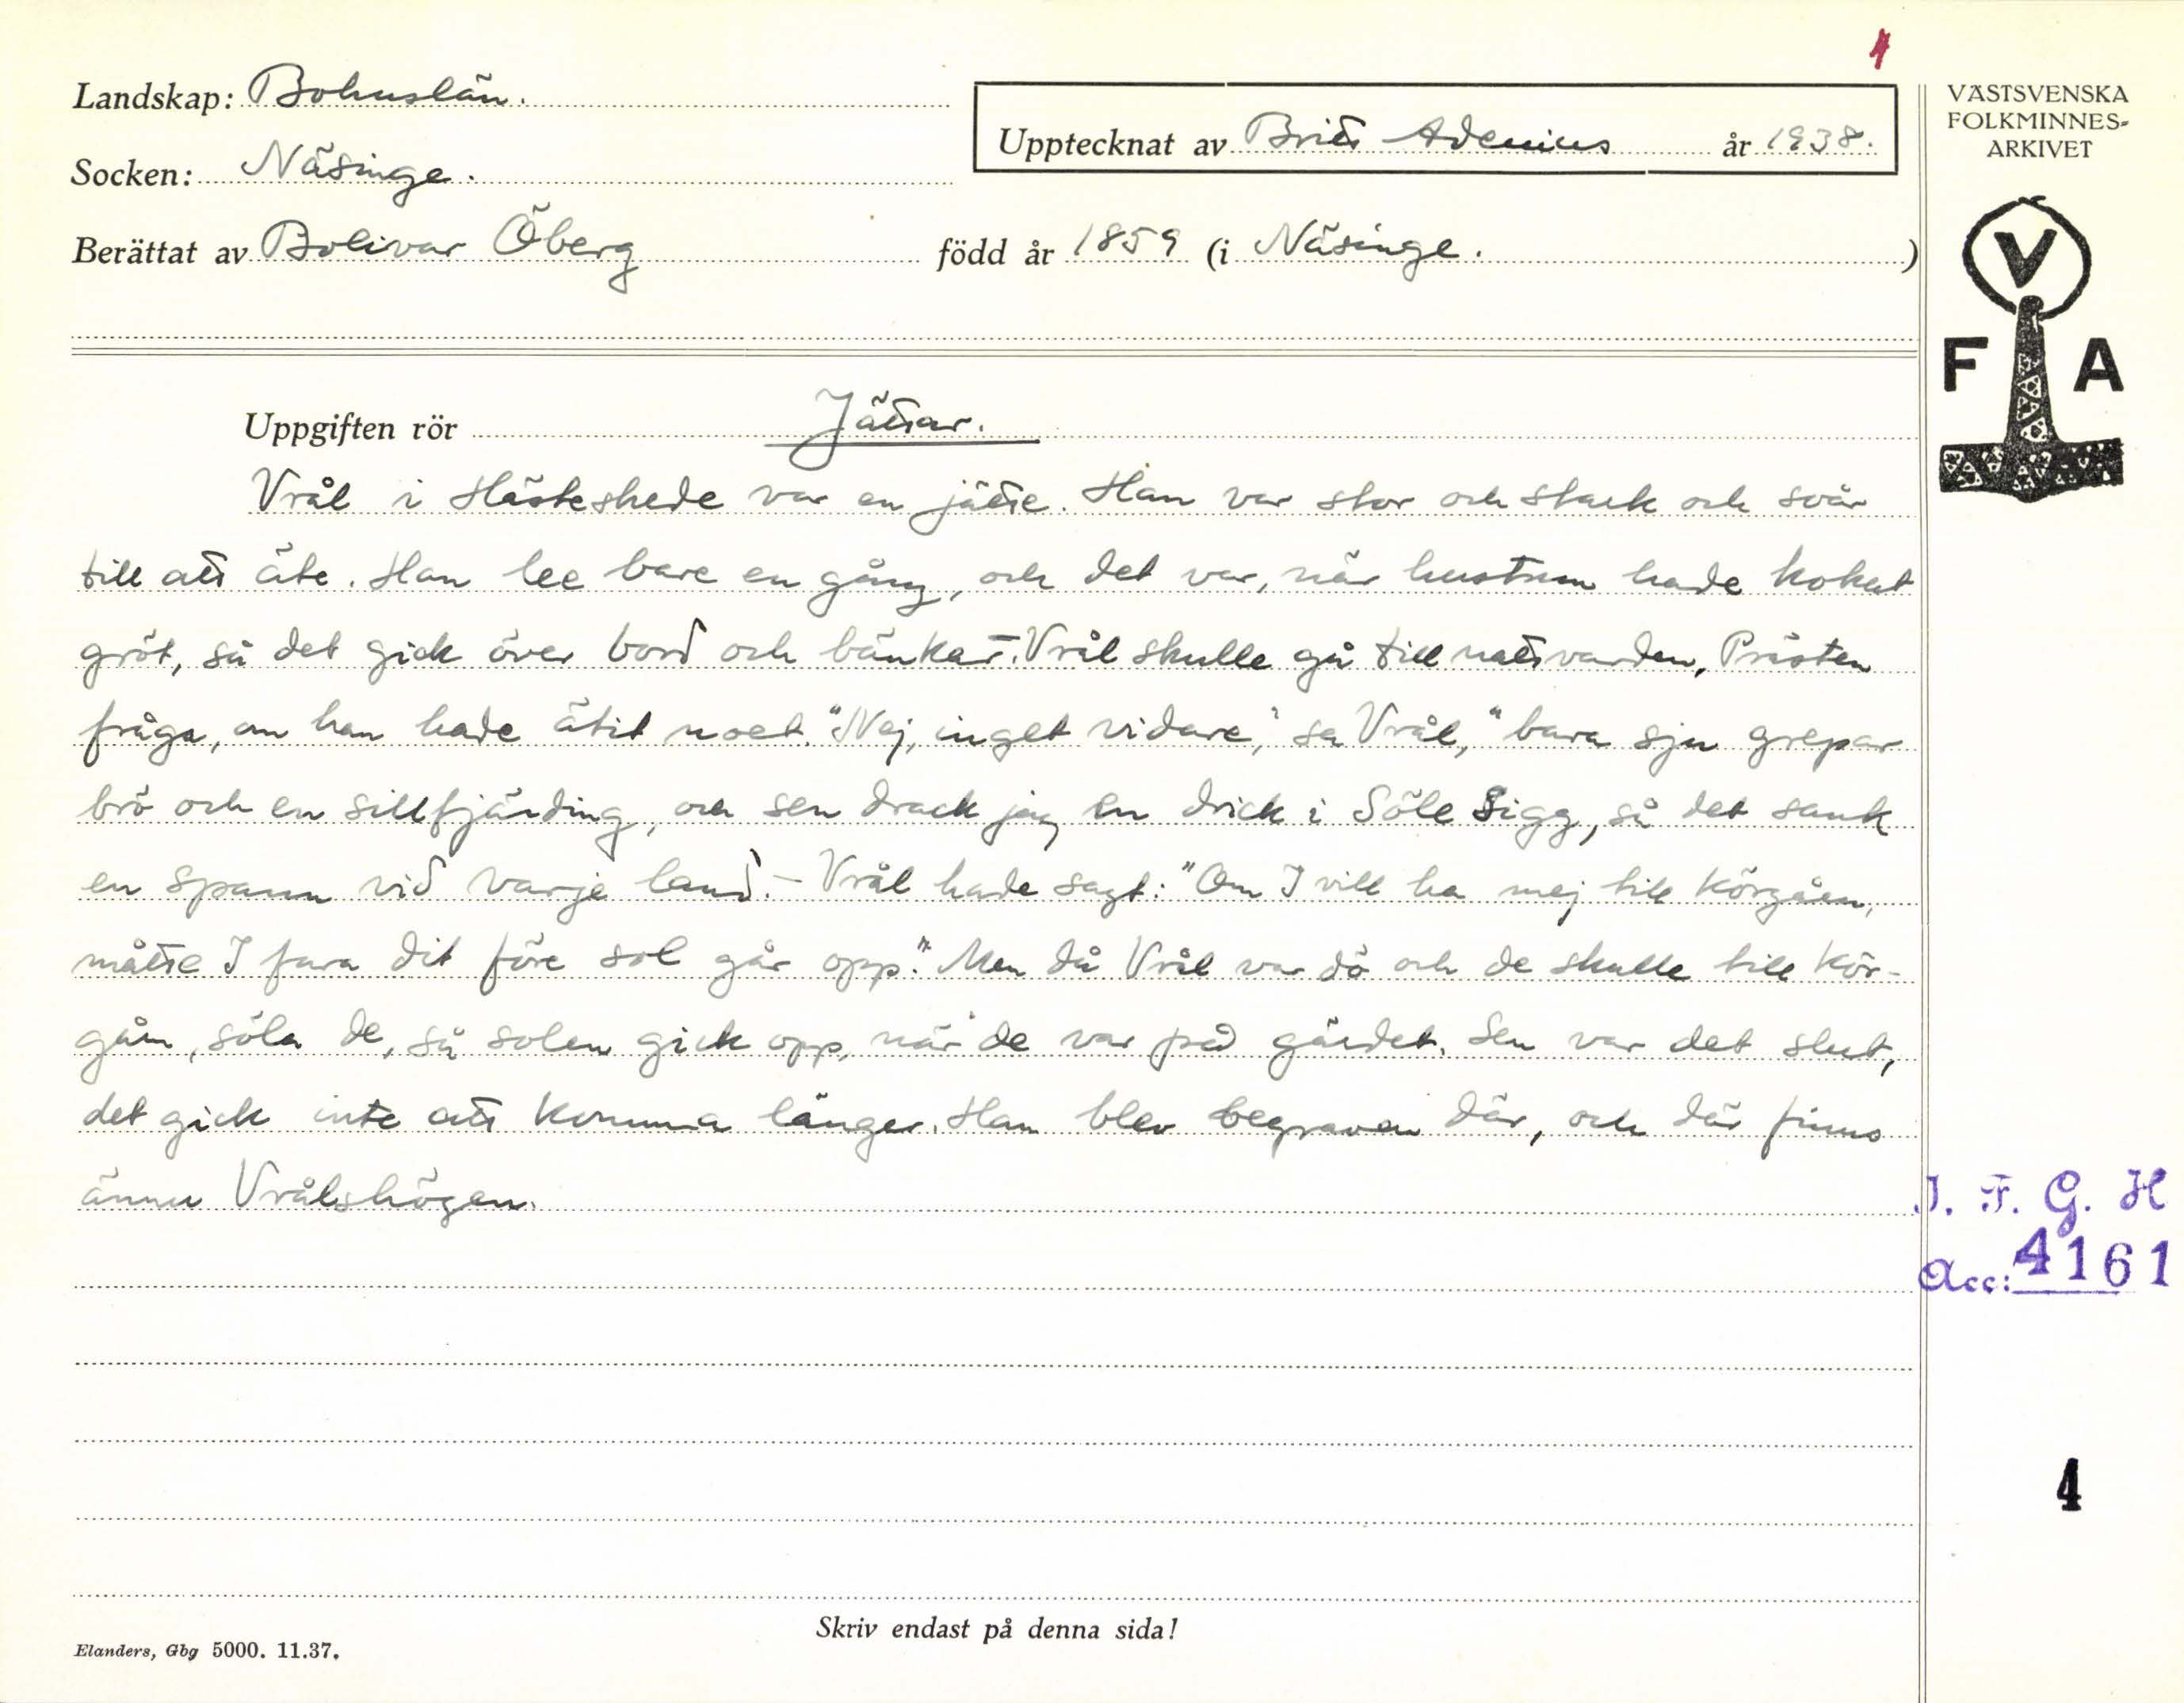 1
Landskap: Bohuslän.
Upptecknat av Britt Adenius år 1938.
VÄSTSVENSKA
FOLKMINNES-
ARKIVET
Socken: Näsinge.
Berättat av Bolivar Öberg född år 1859 (i Näsinge. )
V
F A
Uppgiften rör Jättar.
Vrål i Hästeskede var en jätte. Han var stor och stark och svår
till att äte. Han lee bare en gång, och det var, när hustrun hade kokat
gröt, så det gick över bord och bänkar. Vrål skulle gå till nattvarden, Prästen
fråga, om han hade ätit noet. "Nej, inget vidare," sa Vrål, "bara sju grepar
brö och en sillfjärding, och sen drack jag en drick i Söle Sigg, så det sank
en spann vid varje land. - Vrål hade sagt: "Om I vill ha mej till körgåen,
måtte I fara dit före sol går opp." Men då Vrål var dö och de skulle till kör-
gåm, söla de, så solen gick opp, när de var på gärdet. Sen var det slut,
det gick inte att komma länger. Han blev begraven där, och där finns
ännu Vrålshögen.
J. F. G. H
Acc: 4161
4
Skriv endast på denna sida!
Elanders, Gbg 5000. 11.37.